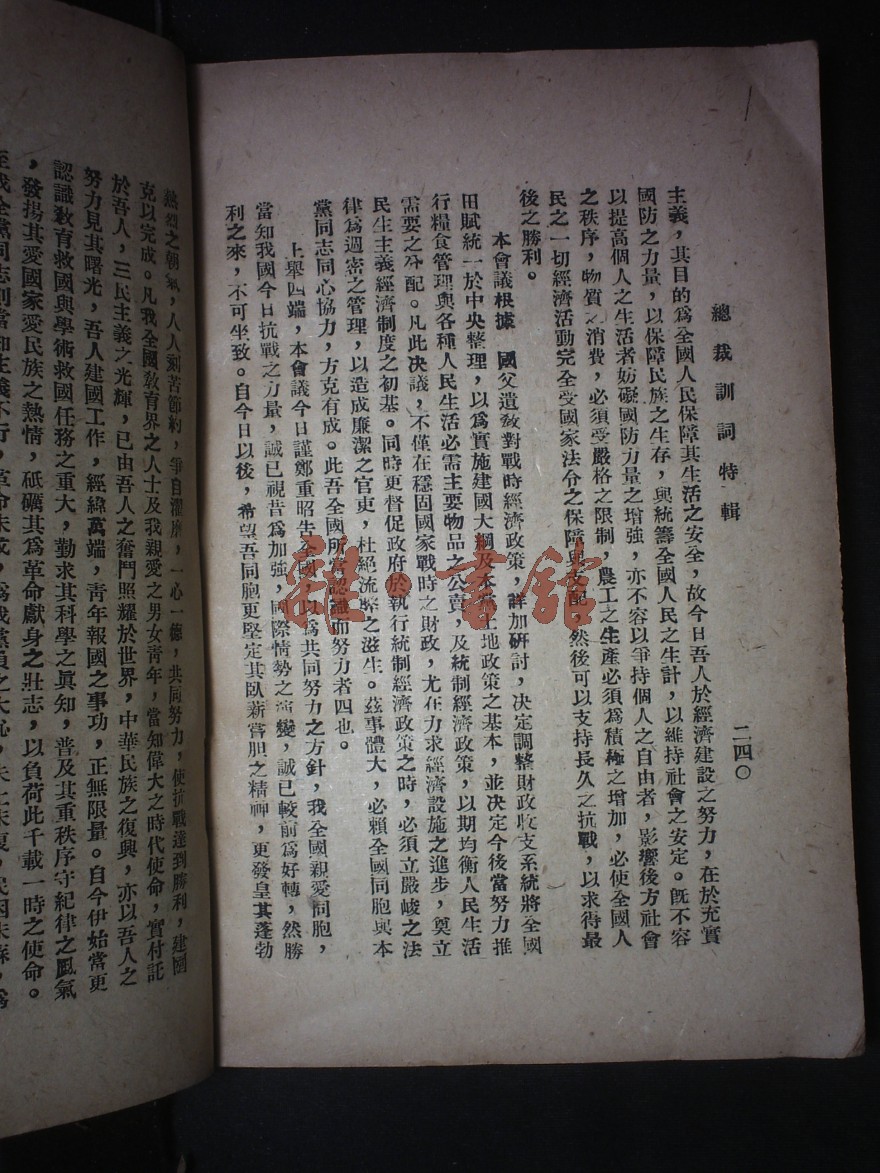 總裁訓詞特輯
二四〇
主義，其目的爲全國人民保障其生活之安全，故今日吾人於經濟建設之努力，在於充實
國防之力量，以保障民族之生存，與統籌全國人民之生計，以維持社會之安定。既不容
以提高個人之生活者妨礙國防力量之增強，亦不容以爭持個人之自由者，影響後方社會
之秩序，物質之消費，必須受嚴格之限制，農工之生產必須爲積極之增加，必使全國人
民之一切經濟活動完全受國家法令之保障與支配，然後可以支持長久之抗戰，以求得最
後之勝利。
本會議根據　國父遺敎對戰時經濟政策，詳加研討，决定調整財政收支系統將全國
田賦統一於中央整理，以爲實施建國大綱及本黨土地政策之基本，並决定今後當努力推
行糧食管理與各種人民生活必需主要物品之公賣，及統制經濟政策，以期均衡人民生活
需要之分配。凡此决議，不僅在穩固國家戰時之財政，尤在力求經濟設施之進步，奠立
民生主義經濟制度之初基。同時更督促政府於執行統制經濟政策之時，必須立嚴峻之法
律爲週密之管理，以造成廉潔之官吏，杜絕流弊之滋生。茲事體大，必賴全國同胞與本
黨同志同心協力，方克有成。此吾全國所當認識而努力者四也。
上舉四端，本會議今日謹鄭重昭告全國，以爲共同努力之方針，我全國親愛同胞，
當知我國今日抗戰之力量，誠已視昔爲加強，國際情勢之演變，誠已較前爲好轉，然勝
利之來，不可坐致。自今日以後，希望吾同胞更堅定其臥薪嘗胆之精神，更發皇其蓬勃
熱烈之朝氣，人人刻苦節約，爭自濯磨，一心一德，共同努力，使抗戰達到勝利，建國
克以完成。凡我全國敎育界之人士及我親愛之男女靑年，當知偉大之時代使命，實付託
於吾人，三民主義之光輝，已由吾人之奮鬥照耀於世界，中華民族之復興，亦以吾人之
努力見其曙光，吾人建國工作，經緯萬端，靑年報國之事功，正無限量。自今伊始當更
認識敎育救國與學術救國任務之重大，勤求其科學之眞知，普及其重秩序守紀律之風氣
，發揚其愛國家愛民族之熱情，砥礪其爲革命獻身之壯志，以負荷此千載一時之使命。
至我全黨同志則當知主義不行，革命未成，爲我黨員之大恥，失土未復，民困未蘇，爲
雜·書館